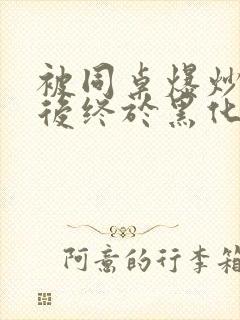 被同桌爆炒
後终於黑化
阿意的行李箱